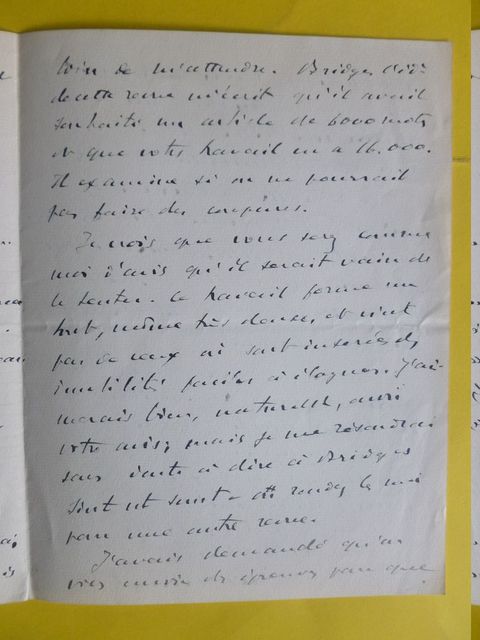 loin de m'attendre. Bridges
de cette revue m'écrit qu'il avait
souhaité un article de 6000 mots
et que votre travail en a 16.000.
Il examine si on ne pourrait
pas faire des coupures.
Je crois que vous serez comme
moi d'avis qu'il serait vain de
le tenter. Ce travail forme un
tout, même très dense, et n'est
pas de ceux où sont insérées des
inutilités faciles à élaguer. J'ai-
merais bien, naturellt, avoir
votre avis; mais je me résoudrai
sans doute à dire à Bridges
sint ut sunt rendez le moi
pour une autre revue.
J'avais demandé qu'on
vous envoie des épreuves pour que